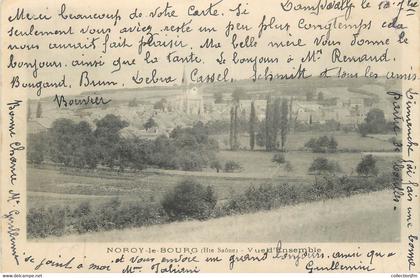 Dampvally le 10 7bre
Merci beaucoup de votre Carte. Si
seulement vous aviez resté un peu plus longtemps cela
nous aurait fait plaisir. Ma belle mère vous donne le
bonjour, ainsi que la tante. Le bonjour à Mr Renaud
Bugand, Brun, Cassel, Schmitt et tous les amis
Bouvier
Bonne Chance Mr Guillemin
Dimanche j'ai fait une
partie de
NOROY-le-BOURG (Hte Saône) - Vue d'Ensemble
se joint à moi et vous envoie un grand bonjour, ainsi que Guillemin